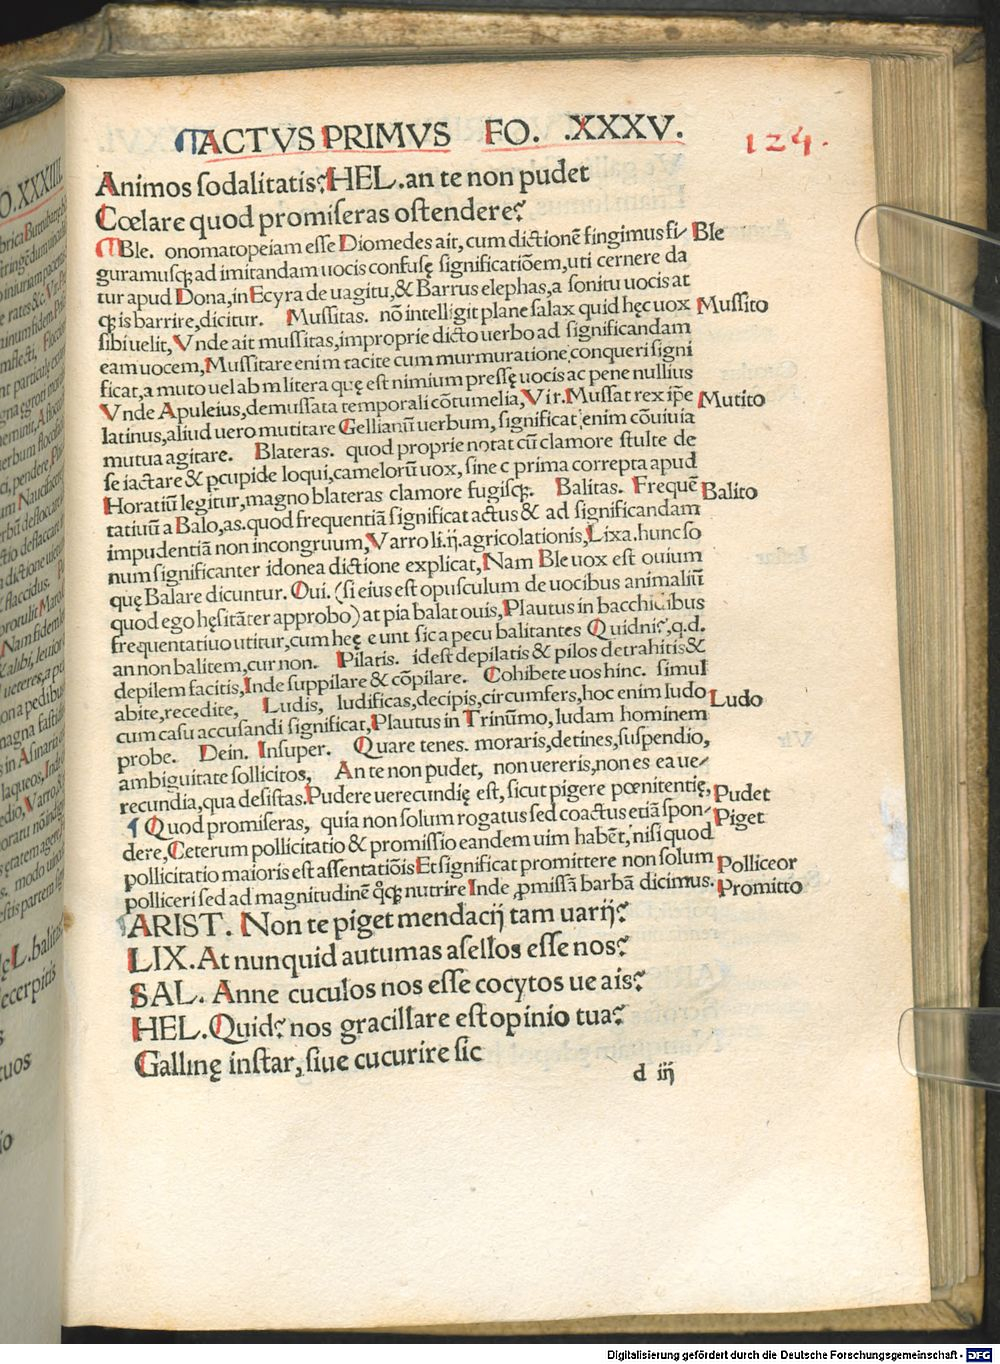 ACTVS PRIMVS FO. .XXXV.
124.
Animos sodalitatis? HEL. an te non pudet
Cœlare quod promiseras ostendere?
Ble. onomatopeiam esse Diomedes ait, cum dictionē fingimus fi- Ble
guramusqꝫ ad imitandam uocis confusę significatiõem, uti cernere da
tur apud Dona, in Ecyra de uagitu, & Barrus elephas, a sonitu uocis at
qꝫ is barrire, dicitur. Mussitas. nõ intelligit plane salax quid hęc uox Mussito
sibi uelit, Vnde ait mussitas, improprie dicto uerbo ad significandam
eam uocem, Mussitare enim tacite cum murmuratione conqueri signi
ficat, a muto uel ab m litera quę est nimium pressę uocis ac pene nullius
Vnde Apuleius, demussata temporali cõtumelia, Vir. Mussat rex ip̄e Mutito
latinus, aliud uero mutitare Gellianū uerbum, significat enim cõuiuia
mutua agitare. Blateras. quod proprie notat cū clamore stulte de
se iactare & ꝑcupide loqui, camelorū uox, sine c prima correpta apud
Horatiū legitur, magno blateras clamore fugisqꝫ. Balitas. Frequē Balito
tatiuū a Balo, as. quod frequentiã significat actus & ad significandam
impudentiã non incongruum, Varro li. ij. agricolationis, Lixa. hunc so
num significanter idonea dictione explicat, Nam Ble uox est ouium
quę Balare dicuntur. Oui. (si eius est opusculum de uocibus animaliū
quod ego hęsitãter approbo) at pia balat ouis, Plautus in bacchidibus
frequentatiuo utitur, cum hęę eunt sic a pecu balitantes Quidni?, q.d.
an non balitem, cur non. Pilatis. idest depilatis & pilos detrahitis &
depilem facitis, Inde suppilare & cõpilare. Cohibete uos hinc. simul
abite, recedite, Ludis, ludificas, decipis, circumfers, hoc enim ludo Ludo
cum casu accusandi significat, Plautus in Trinūmo, ludam hominem
probe. Dein. Insuper. Quare tenes. moraris, detines, suspendio,
ambiguitate sollicitos, An te non pudet, non uereris, non es ea ue-
recundia, qua desistas. Pudere uerecundię est, sicut pigere pœnitentię, Pudet
¶ Quod promiseras, quia non solum rogatus sed coactus etiã spon- Piget
dere, Ceterum pollicitatio & promissio eandem uim habēt, nisi quod
pollicitatio maioris est assentatiõis Et significat promittere non solum Polliceor
polliceri sed ad magnitudinē qͥqꝫ nutrire Inde ꝓmissã barbã dicimus. Promitto
ARIST. Non te piget mendacij tam uarij?
LIX. At nunquid autumas asellos esse nos?
SAL. Anne cuculos nos esse cocytos ue ais?
HEL. Quid? nos gracillare est opinio tua?
Gallinę instar, siue cucurire sic
d iij
Digitalisierung gefördert durch die Deutsche Forschungsgemeinschaft - DFG